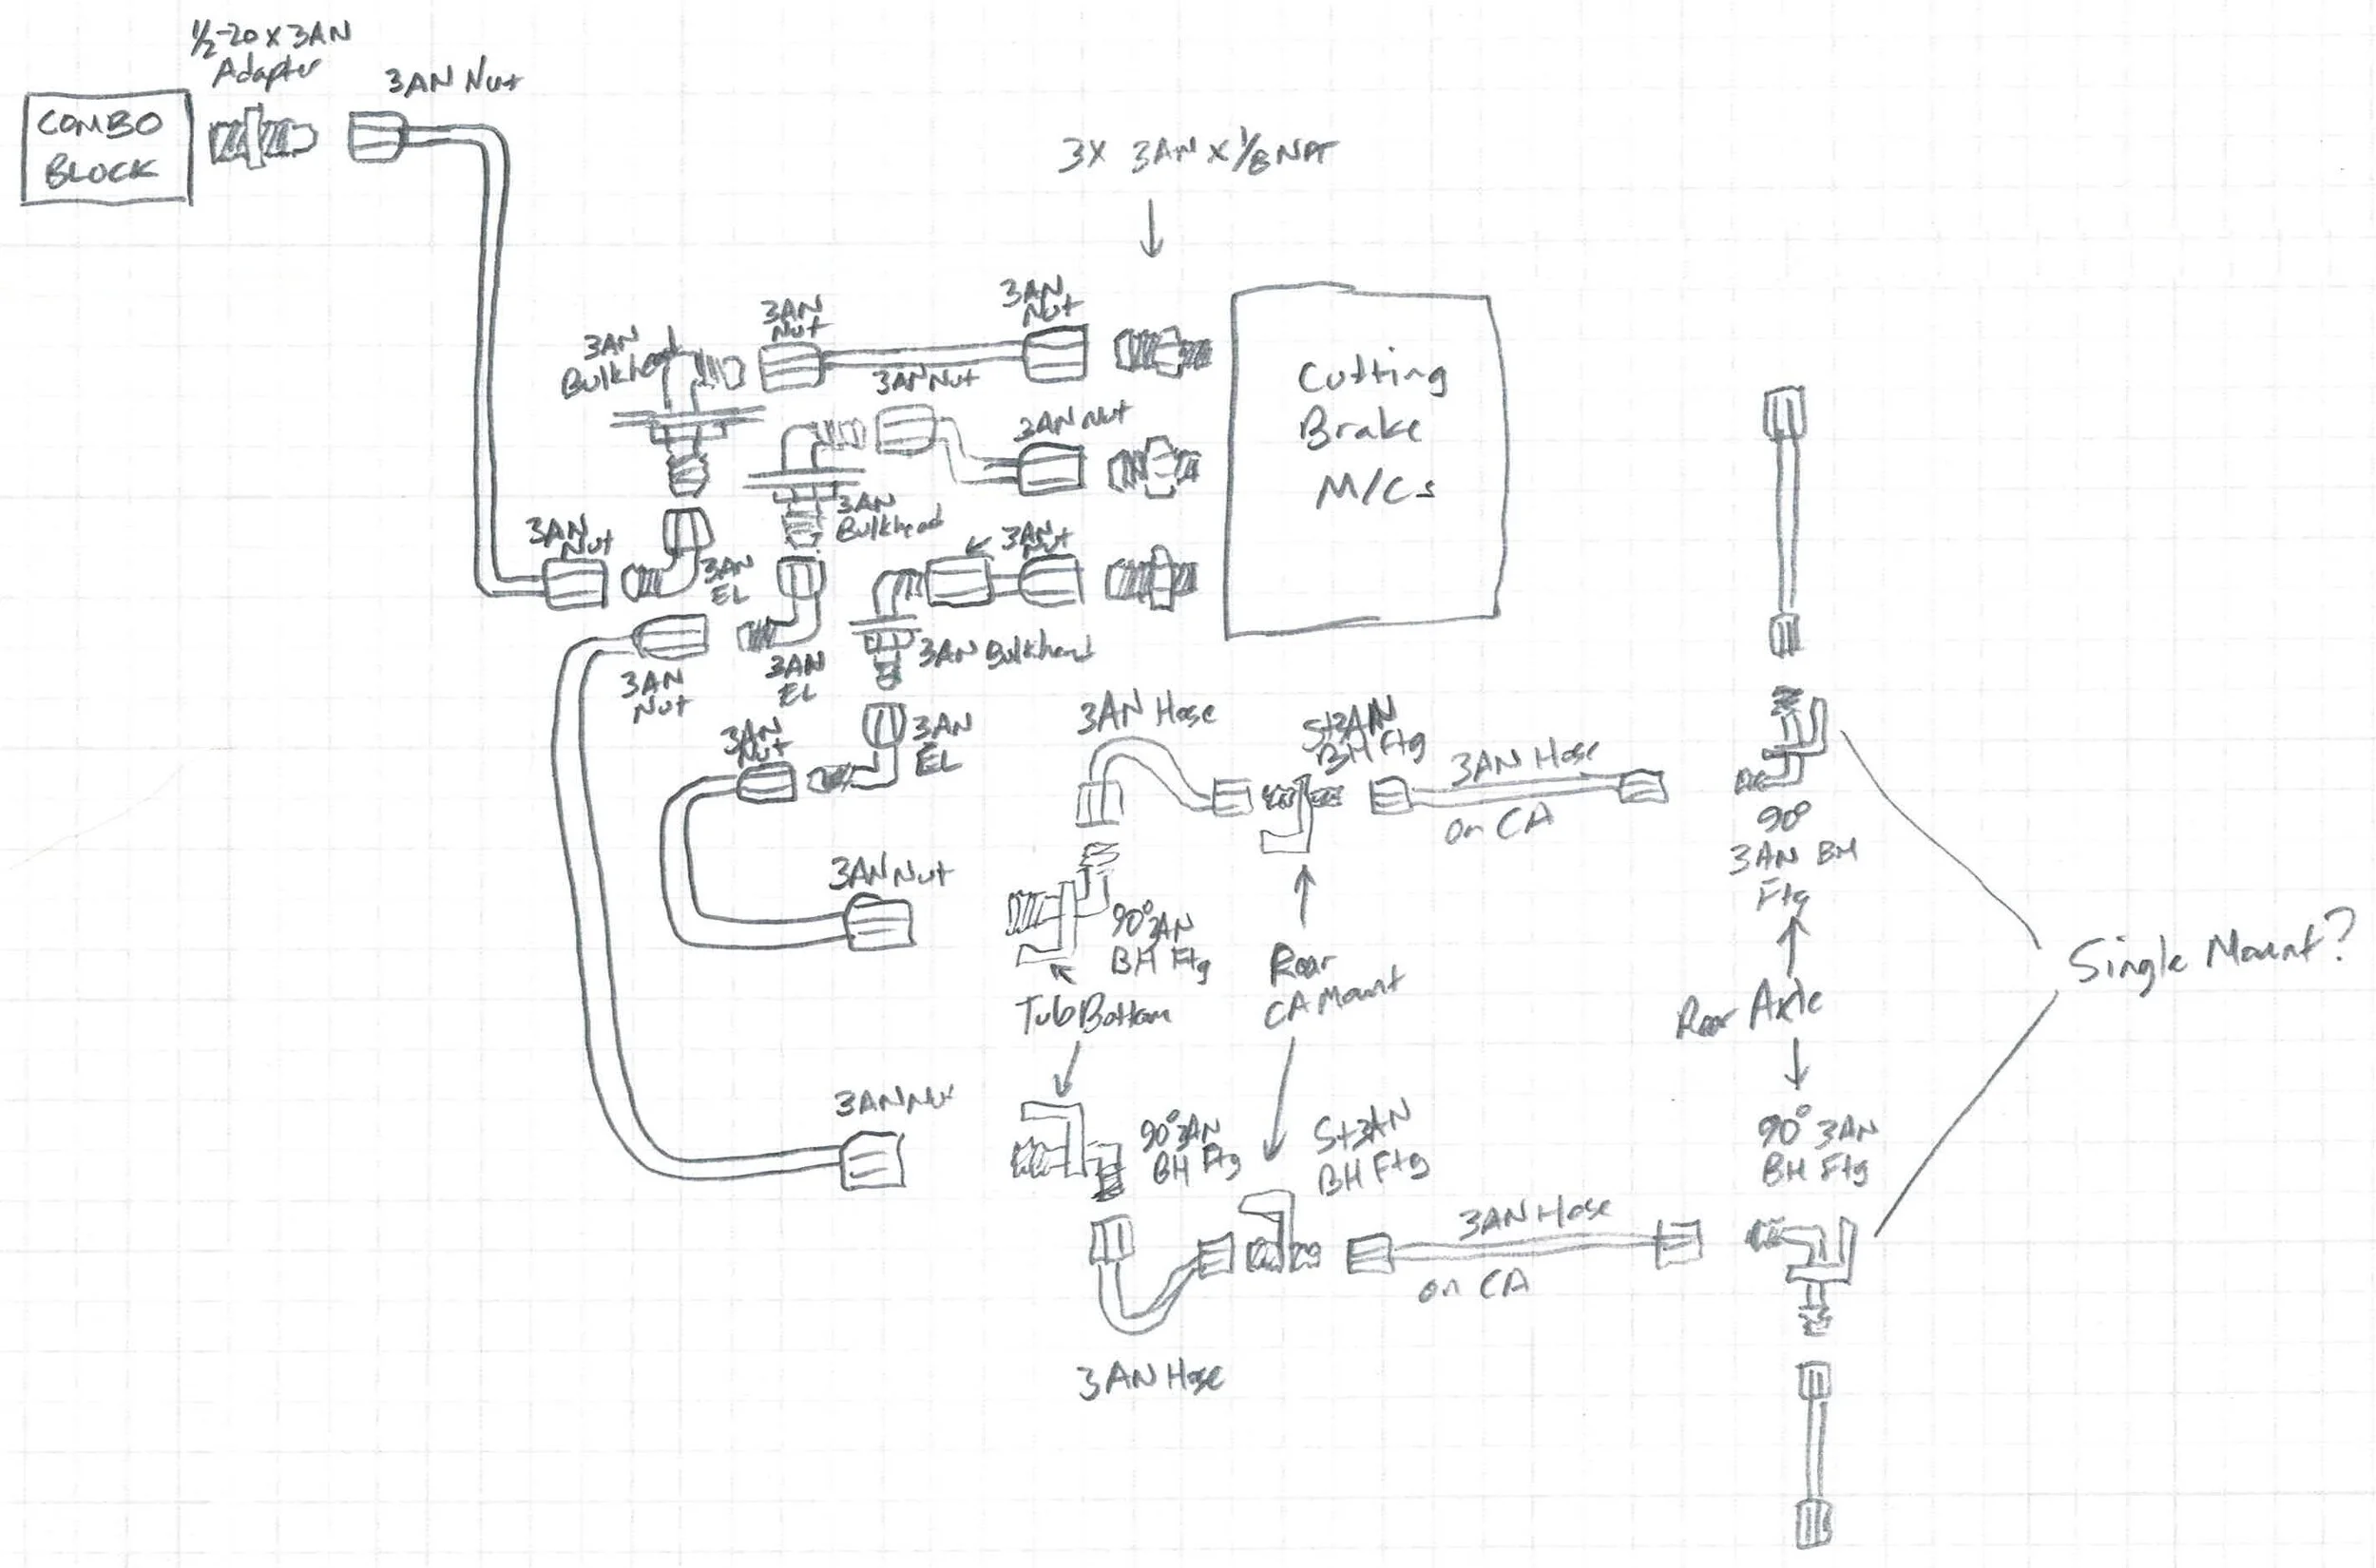 1/2-20 x 3AN
Adapter
3AN Nut
COMBO
BLOCK
3X 3AN x 1/8 NPT
3AN
Nut
3AN
Nut
3AN
Bulkhead
3AN Nut
3AN Nut
Cutting
Brake
M/Cs
3AN
Bulkhead
3AN
Nut
3AN
Nut
3AN
EL
3AN Bulkhead
3AN
EL
3AN
Nut
3AN
Nut
3AN
EL
3AN Hose
St 3AN
BH Ftg
3AN Hose
on CA
90°
3AN BH
Ftg
3AN Nut
90° 3AN
BH Ftg
Rear
CA Mount
Tub Bottom
Single Mount?
Rear Axle
3AN Nut
90° 3AN
BH Ftg
St 3AN
BH Ftg
90° 3AN
BH Ftg
3AN Hose
on CA
3AN Hose